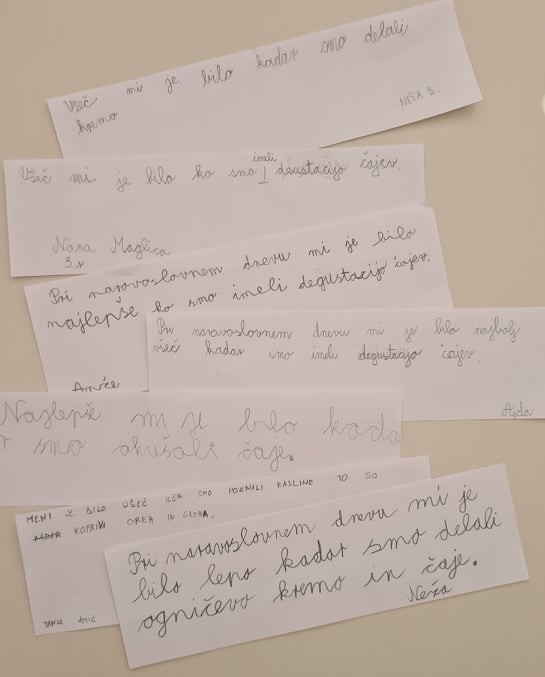 Všeč mi je bilo kadar smo delali
kremo
NEŽA B.
Všeč mi je bilo ko smo imeli degustacijo čajev.
Nana Maglica
3. r
Pri naravoslovnem dnevu mi je bilo
najlepše ko smo imeli degustacijo čajev.
Pri naravoslovnem dnevu mi je bilo najbolj
všeč kadar smo imeli degustacijo čajev.
Ajda
Najlepše mi je bilo kada
r smo okušali čaje.
MENI JE BILO VŠEČ KER SMO POZNALI RASLINE TO SO
KOPRIVA OREH IN
Pri naravoslovnem dnevu mi je
bilo lepo kadar smo delali
ogničevo kremo in čaje.
Neža